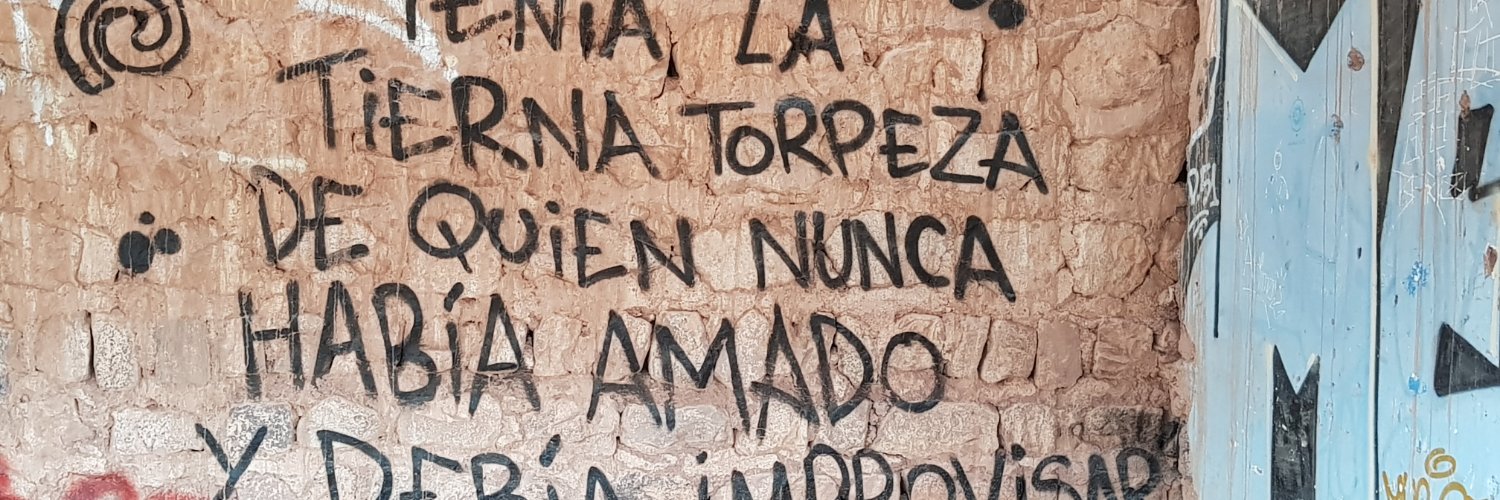 TENÍA LA
TiERNA TORPEZA
DE QUiEN NUNCA
HABÍA AMADO
Y DEBÍA iMPROViSAR